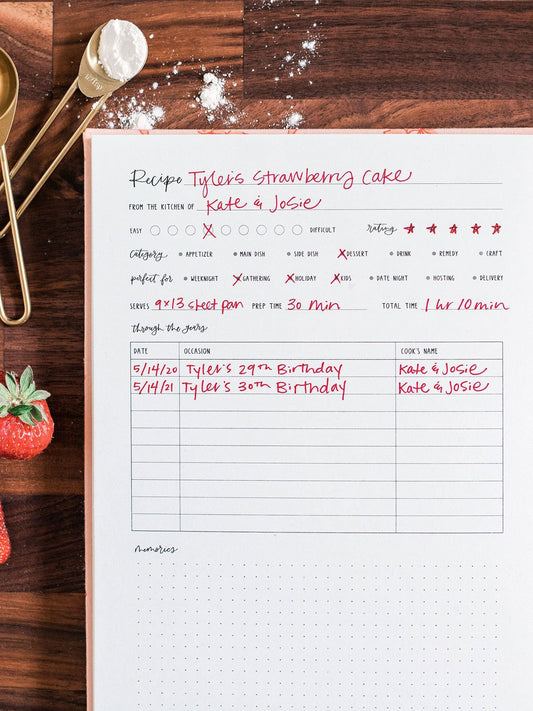 Recipe Tyler's Strawberry Cake
FROM THE KITCHEN OF Kate & Josie
EASY X DIFFICULT rating ★ ★ ★ ★ ★
category APPETIZER MAIN DISH SIDE DISH X DESSERT DRINK REMEDY CRAFT
perfect for WEEKNIGHT X GATHERING X HOLIDAY X KIDS DATE NIGHT HOSTING DELIVERY
SERVES 9x13 sheet pan PREP TIME 30 min TOTAL TIME 1 hr 10 min
through the years
DATE OCCASION COOK'S NAME
5/14/20 Tyler's 29th Birthday Kate & Josie
5/14/21 Tyler's 30th Birthday Kate & Josie
memories